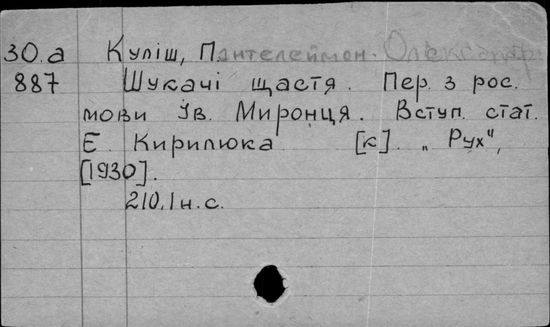 30.а Куліш, Пантелеймон. Олександр
887 Шукачі щастя. Пер. з рос.
мови Ів. Миронця. Вступ. стат.
Є. Кирилюка. [К]. „Рух",
[1930].
210,1 н.с.